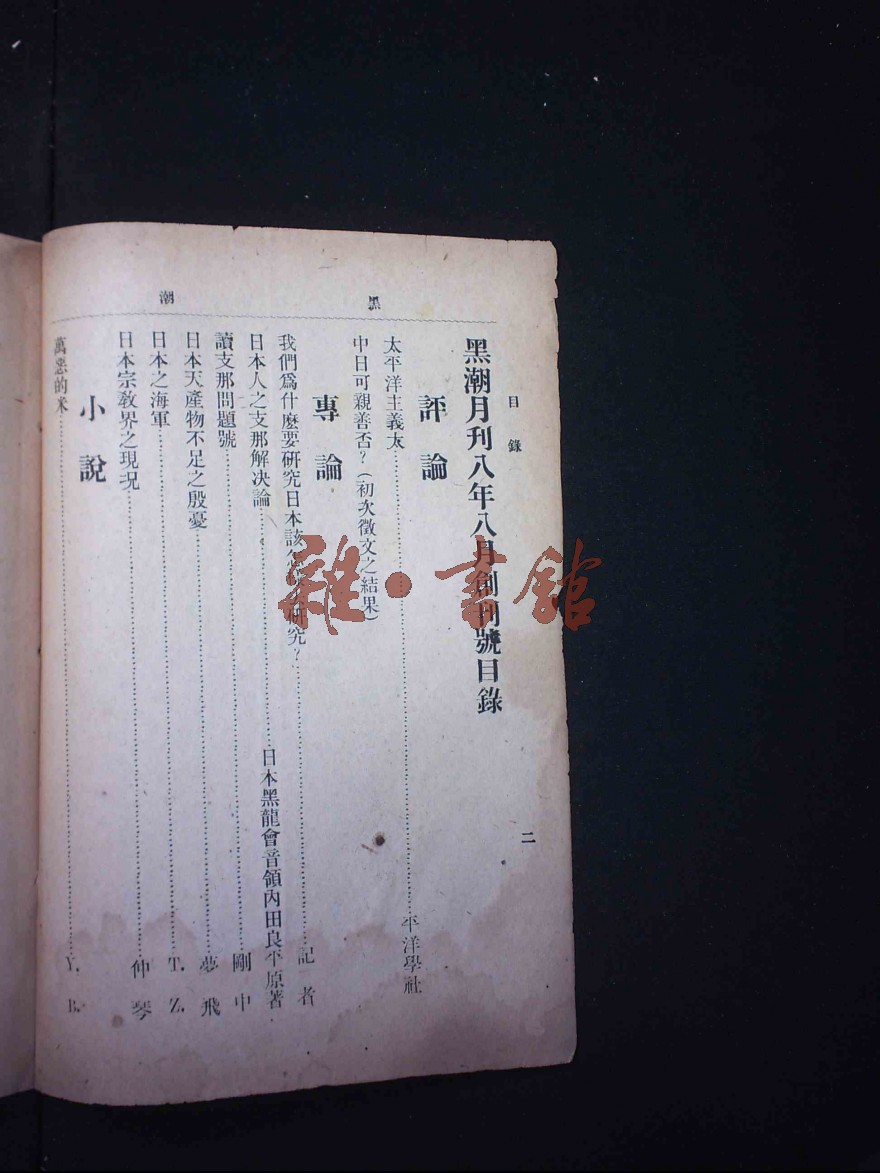 黑潮
目錄
二
黑潮月刊八年八月創刊號目錄
評論
太平洋主義太……平洋學社
中日可親善否？（初次徵文之結果）
專論
我們爲什麼要研究日本該怎研究？……記者
日本人之支那解决論……日本黑龍會音領內田良平原著
讀支那問題號……剛中
日本天產物不足之殷憂……夢飛
日本之海軍……T. Z.
日本宗教界之現况……仲琴
小說
萬惡的米……Y. B.
雜·書館